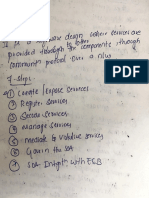 It is a software design where services are
provided through for components through
communicat' protocol over a n/w
7-Steps
1) Create / Expose Services
2) Register Services
3) Secure Services
4) Manage Services
5) Mediate & Virtualize services
6) Govern the SOA
7) SOA Integrat' with ESB